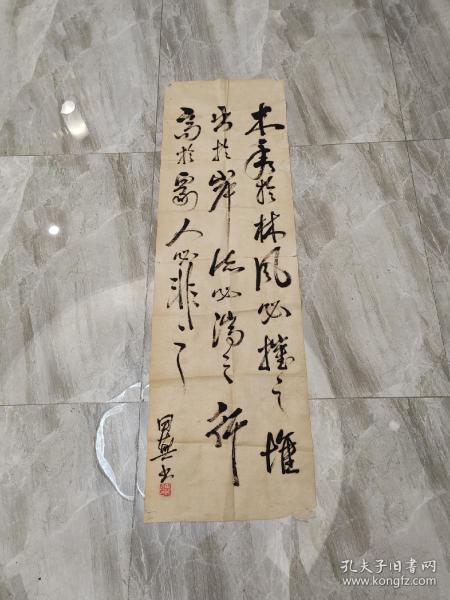 木秀於林風必摧之堆
出於岸流必湍之行
高於眾人必非之
孔夫子旧书网
www.kongfz.com